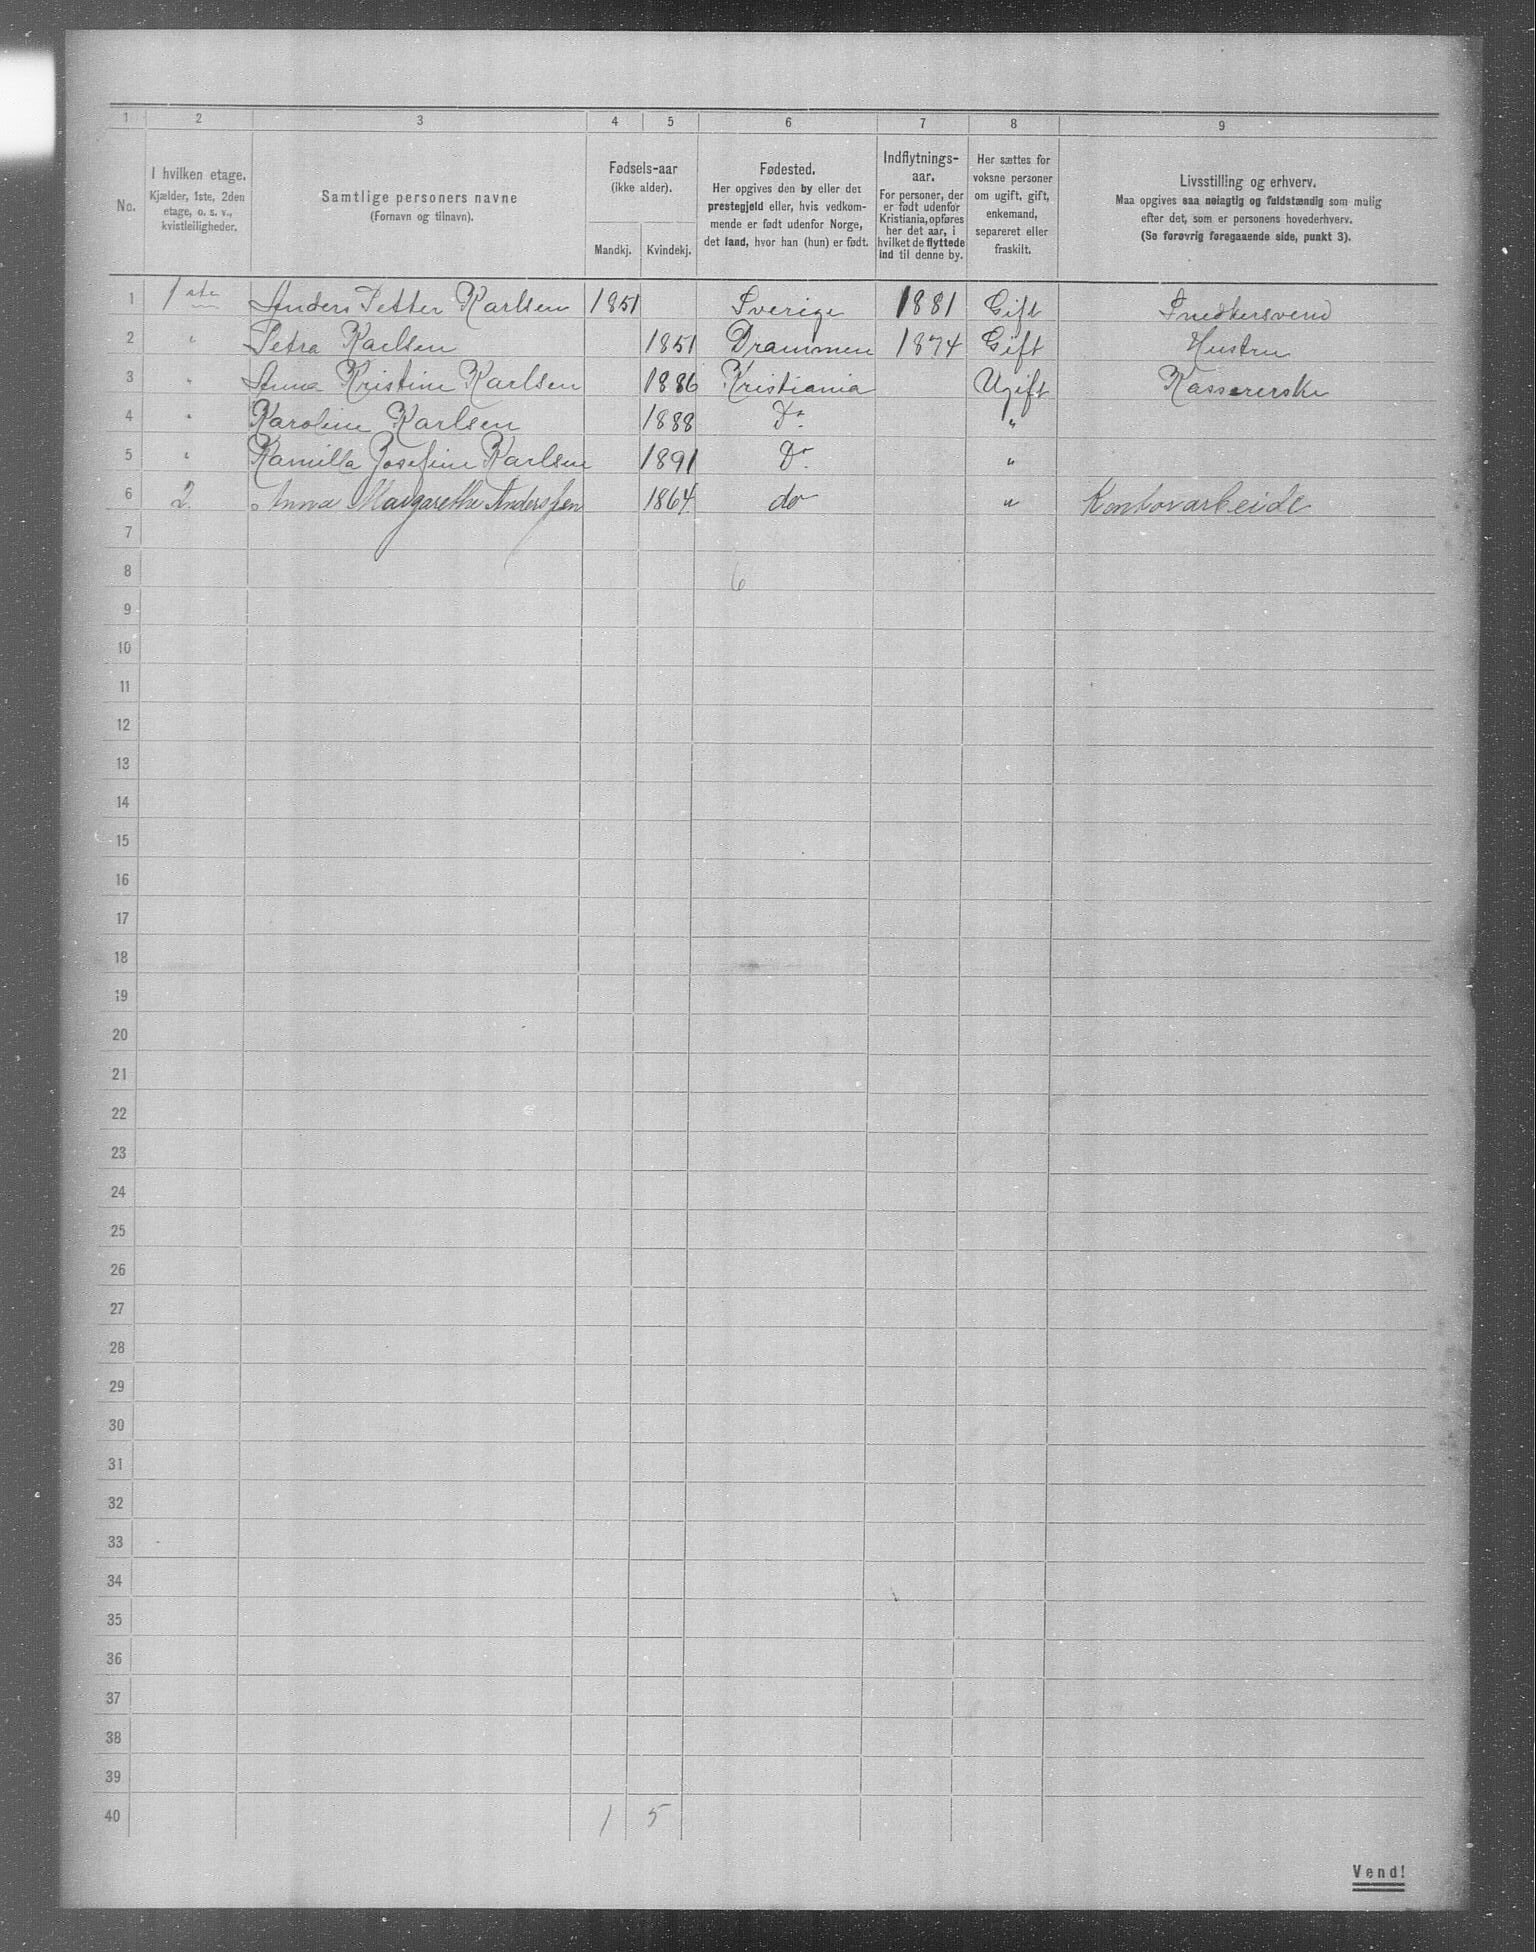 1 2 3 4 5 6 7 8 9
No.
I hvilken etage.
Kjælder, 1ste, 2den
etage, o. s. v.,
kvistleiligheder.
Samtlige personers navne
(Fornavn og tilnavn).
Fødsels-aar
(ikke alder).
Mandkj. Kvindekj.
Fødested.
Her opgives den by eller det
prestegjeld eller, hvis vedkom-
mende er født udenfor Norge,
det land, hvor han (hun) er født.
Indflytnings-
aar.
For personer, der
er født udenfor
Kristiania, opføres
her det aar, i
hvilket de flyttede
ind til denne by.
Her sættes for
voksne personer
om ugift, gift,
enkemand,
separeret eller
fraskilt.
Livsstilling og erhverv.
Maa opgives saa nøiagtig og fuldstændig som mulig
efter det, som er personens hovederhverv.
(Se forøvrig foregaaende side, punkt 3).
1 1ste Anders Petter Karlsen 1851 Sverige 1881 Gift Snedkersvend
2 " Petra Karlsen 1851 Drammen 1874 Gift Hustru
3 " Anna Kristine Karlsen 1886 Kristiania Ugift Kassererske
4 " Karoline Karlsen 1888 Do. "
5 " Kamilla Josefine Karlsen 1891 Do. "
6 2. Anna Margarethe Anderssen 1864 do " Kontorarbeide
7
8 6
9
10
11
12
13
14
15
16
17
18
19
20
21
22
23
24
25
26
27
28
29
30
31
32
33
34
35
36
37
38
39
40 1 5
Vend!